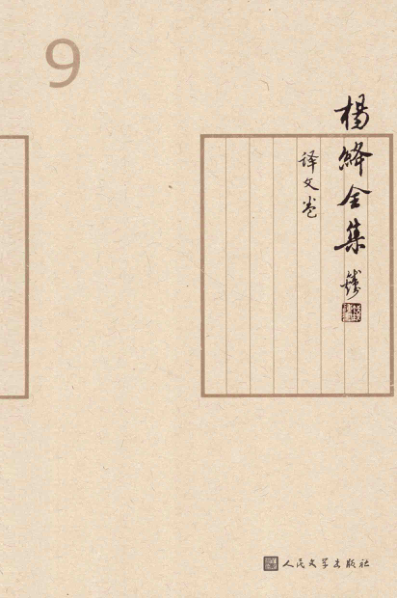 9
杨绛全集
译文卷
人民文学出版社